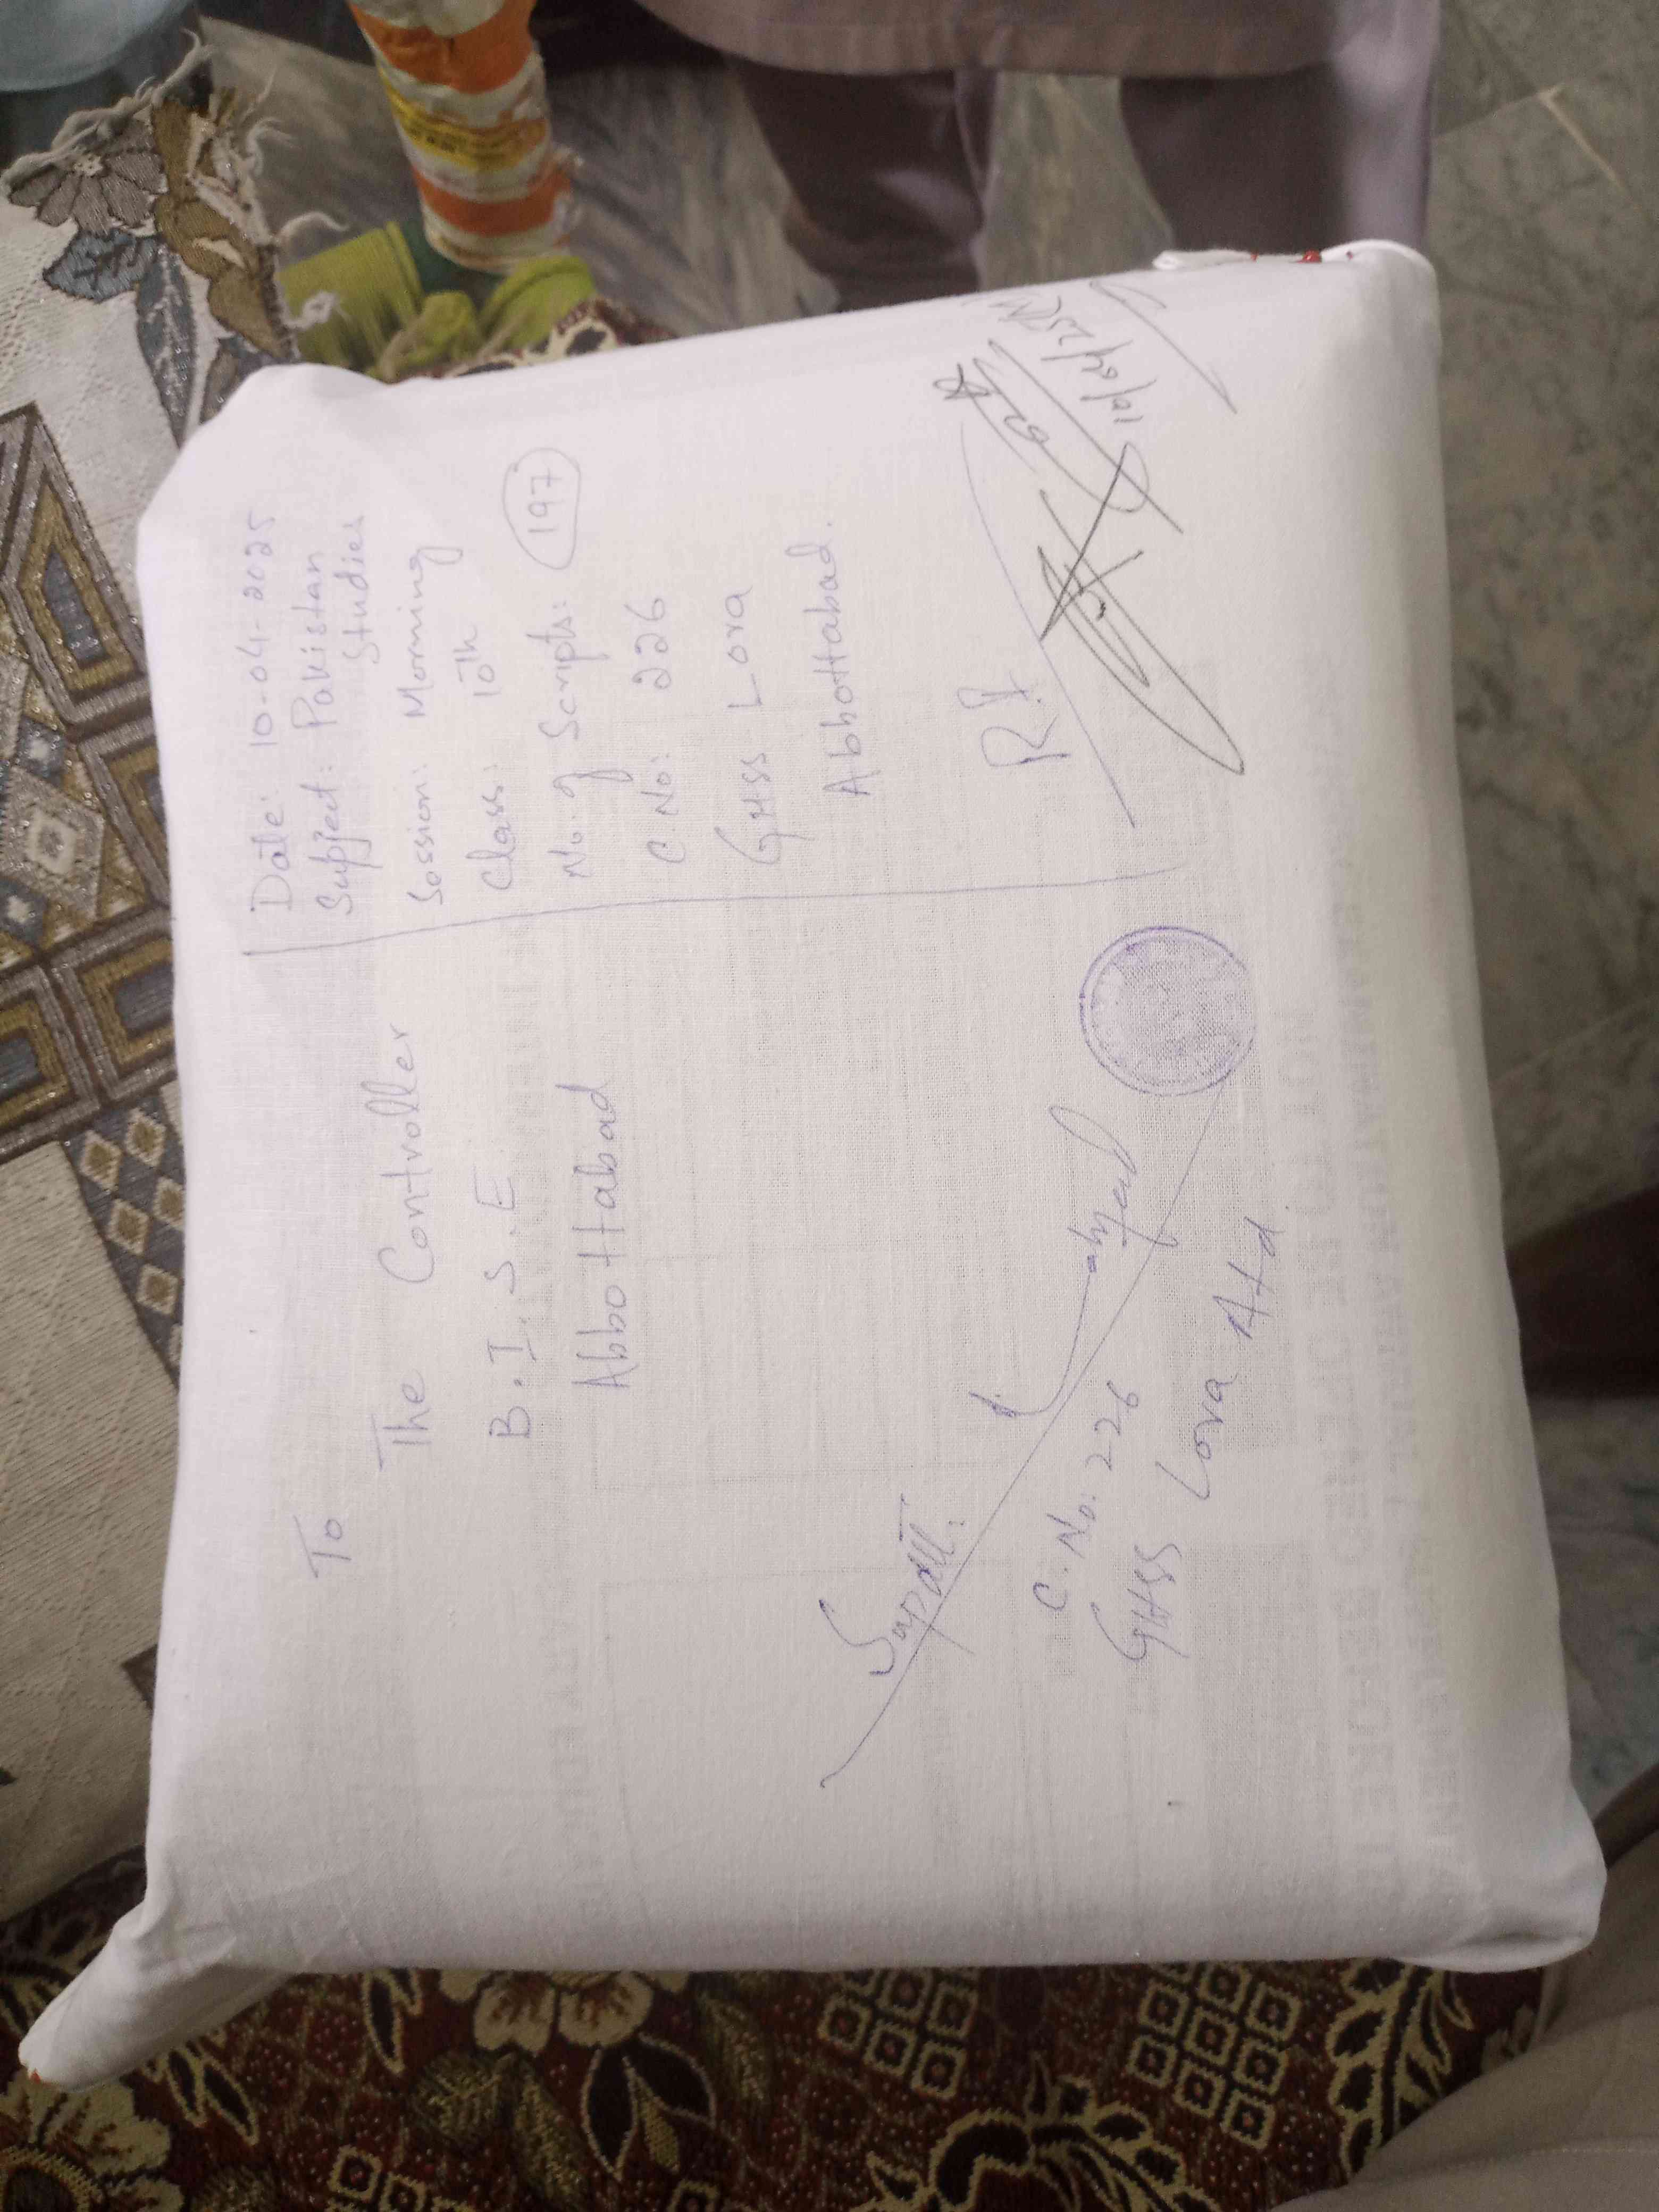 To
The Controller
B.I.S.E
Abbottabad
Date: 10-04-2025
Subject: Pakistan
Studies
Session: Morning
Class: 10th
No. of Scripts: 197
C.No: 226
GHSS Lora
Abbottabad.
Supdtt:
C.No: 226
GHSS Lora Atd
R.I
10/04/25